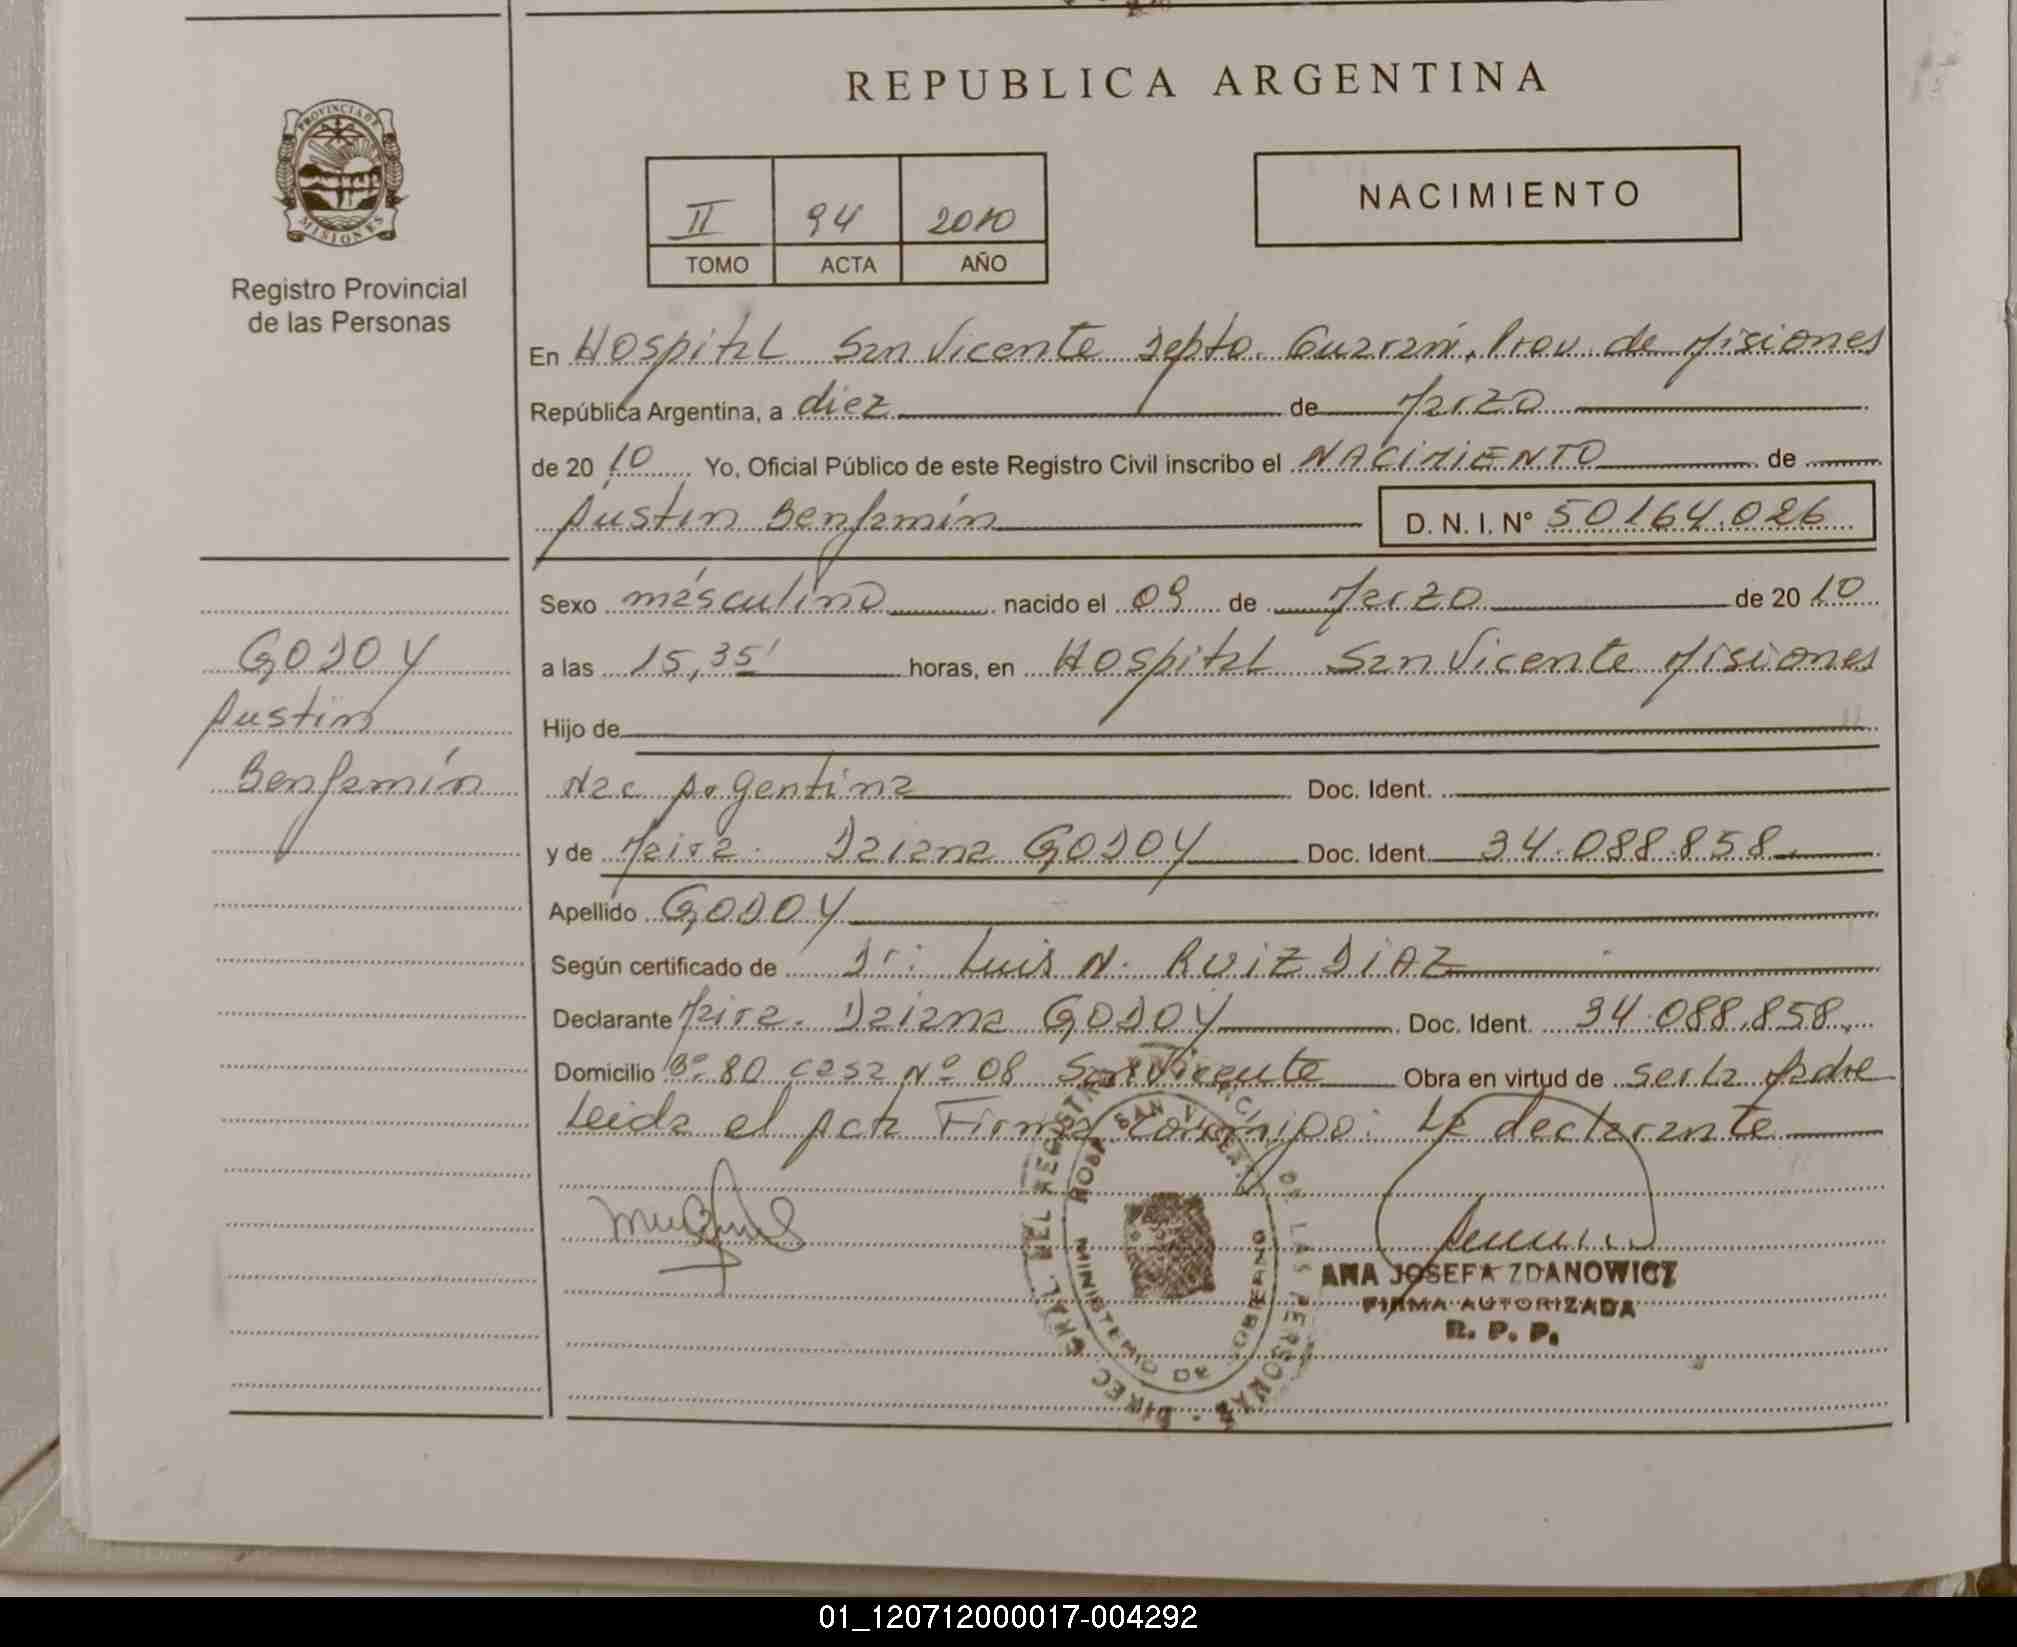 REPUBLICA ARGENTINA
PROVINCIA DE MISIONES
Registro Provincial
de las Personas
II 94 2010
TOMO ACTA AÑO
NACIMIENTO
En Hospital San Vicente Depto. Guaraní, Prov. de Misiones
República Argentina, a diez de Marzo
de 2010 Yo, Oficial Público de este Registro Civil inscribo el NACIMIENTO de
Austin Benjamín D. N. I. N° 50164.026
Sexo masculino nacido el 09 de Marzo de 2010
a las 15,35' horas, en Hospital San Vicente Misiones
Hijo de
Nac Argentina Doc. Ident.
y de Maira Daiana GODOY Doc. Ident. 34.088.858
Apellido GODOY
Según certificado de Dr: Luis N. RUIZ DIAZ
Declarante Maira Daiana GODOY Doc. Ident. 34.088.858
Domicilio Bº 80 casa Nº 08 San Vicente Obra en virtud de ser la Madre
Leida el Acta Firma Conmigo: La declarante
GODOY
Austin
Benjamín
DIREC. GRAL. DEL REGISTRO DE LAS PERSONAS
HOSP. SAN VICENTE
MINISTERIO DE GOBIERNO
ANA JOSEFA ZDANOWICZ
FIRMA AUTORIZADA
R. P. P.
01_120712000017-004292